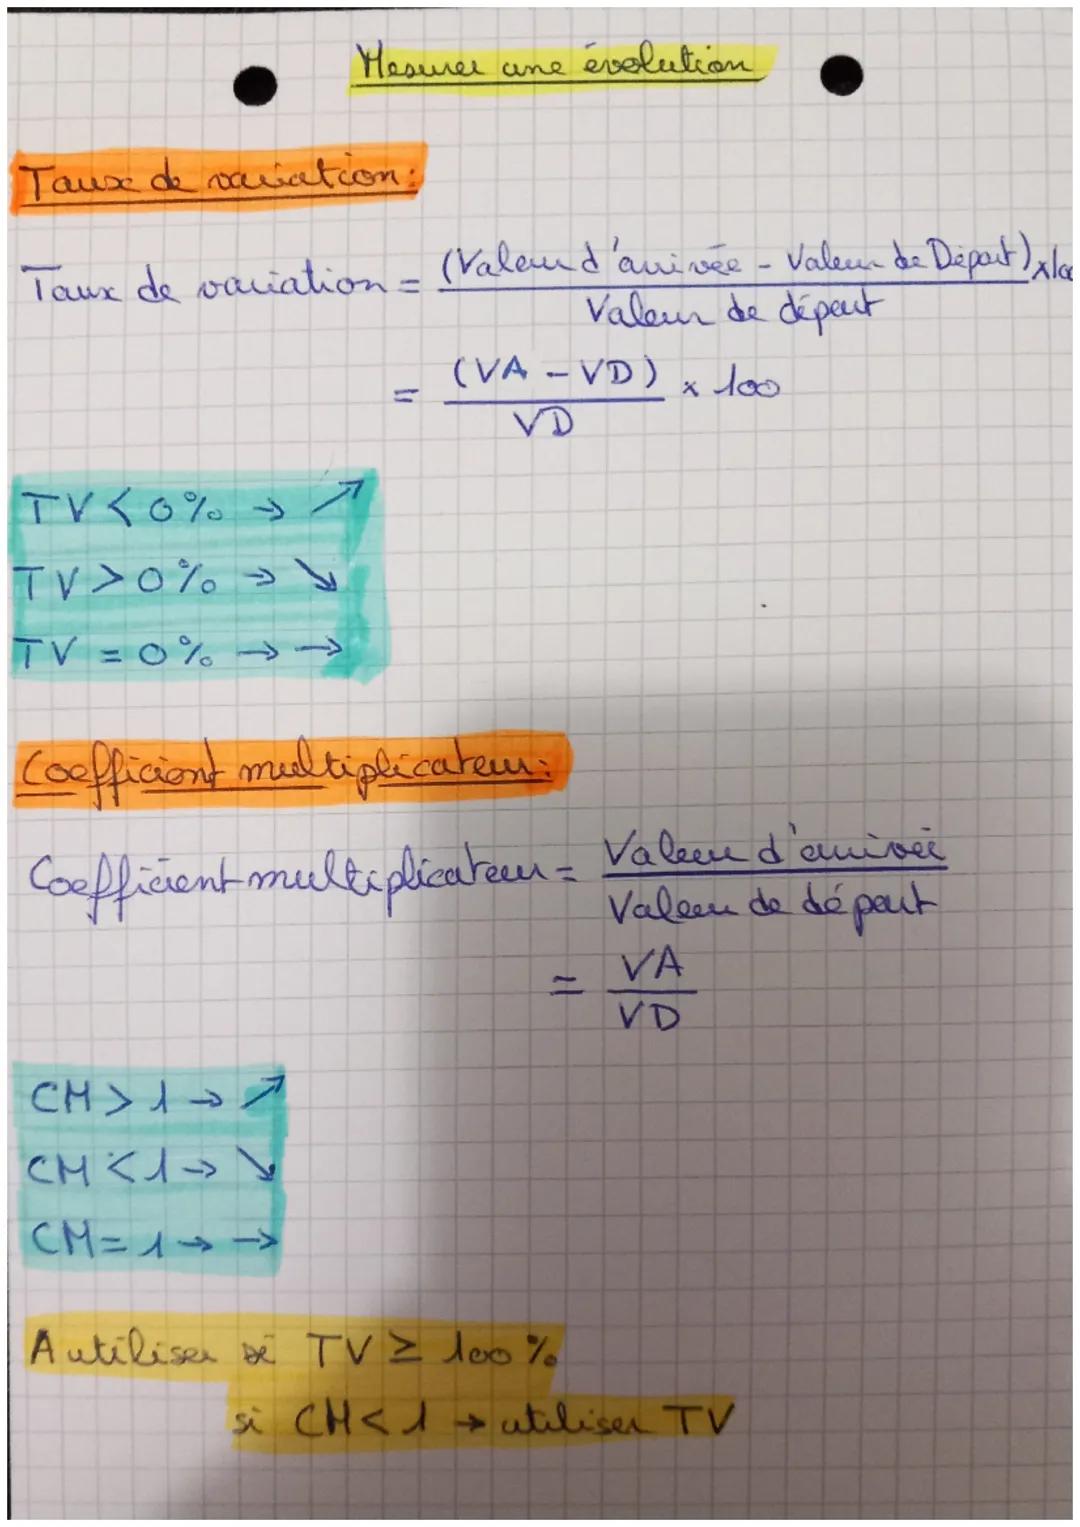 Mesurer une évolution
Taux de variation:
Taux de variation = (Valeur d'arrivée - Valeur de Départ) x100
Valeur de départ
= (VA - VD) x 100
VD
TV < 0% → ↗
TV > 0% → ↘
TV = 0% → →
Coefficient multiplicateur:
Coefficient multiplicateur = Valeur d'arrivée
Valeur de départ
= VA
VD
CM > 1 → ↗
CM < 1 → ↘
CM = 1 → →
A utiliser si TV ≥ 100 %
si CM < 1 → utiliser TV